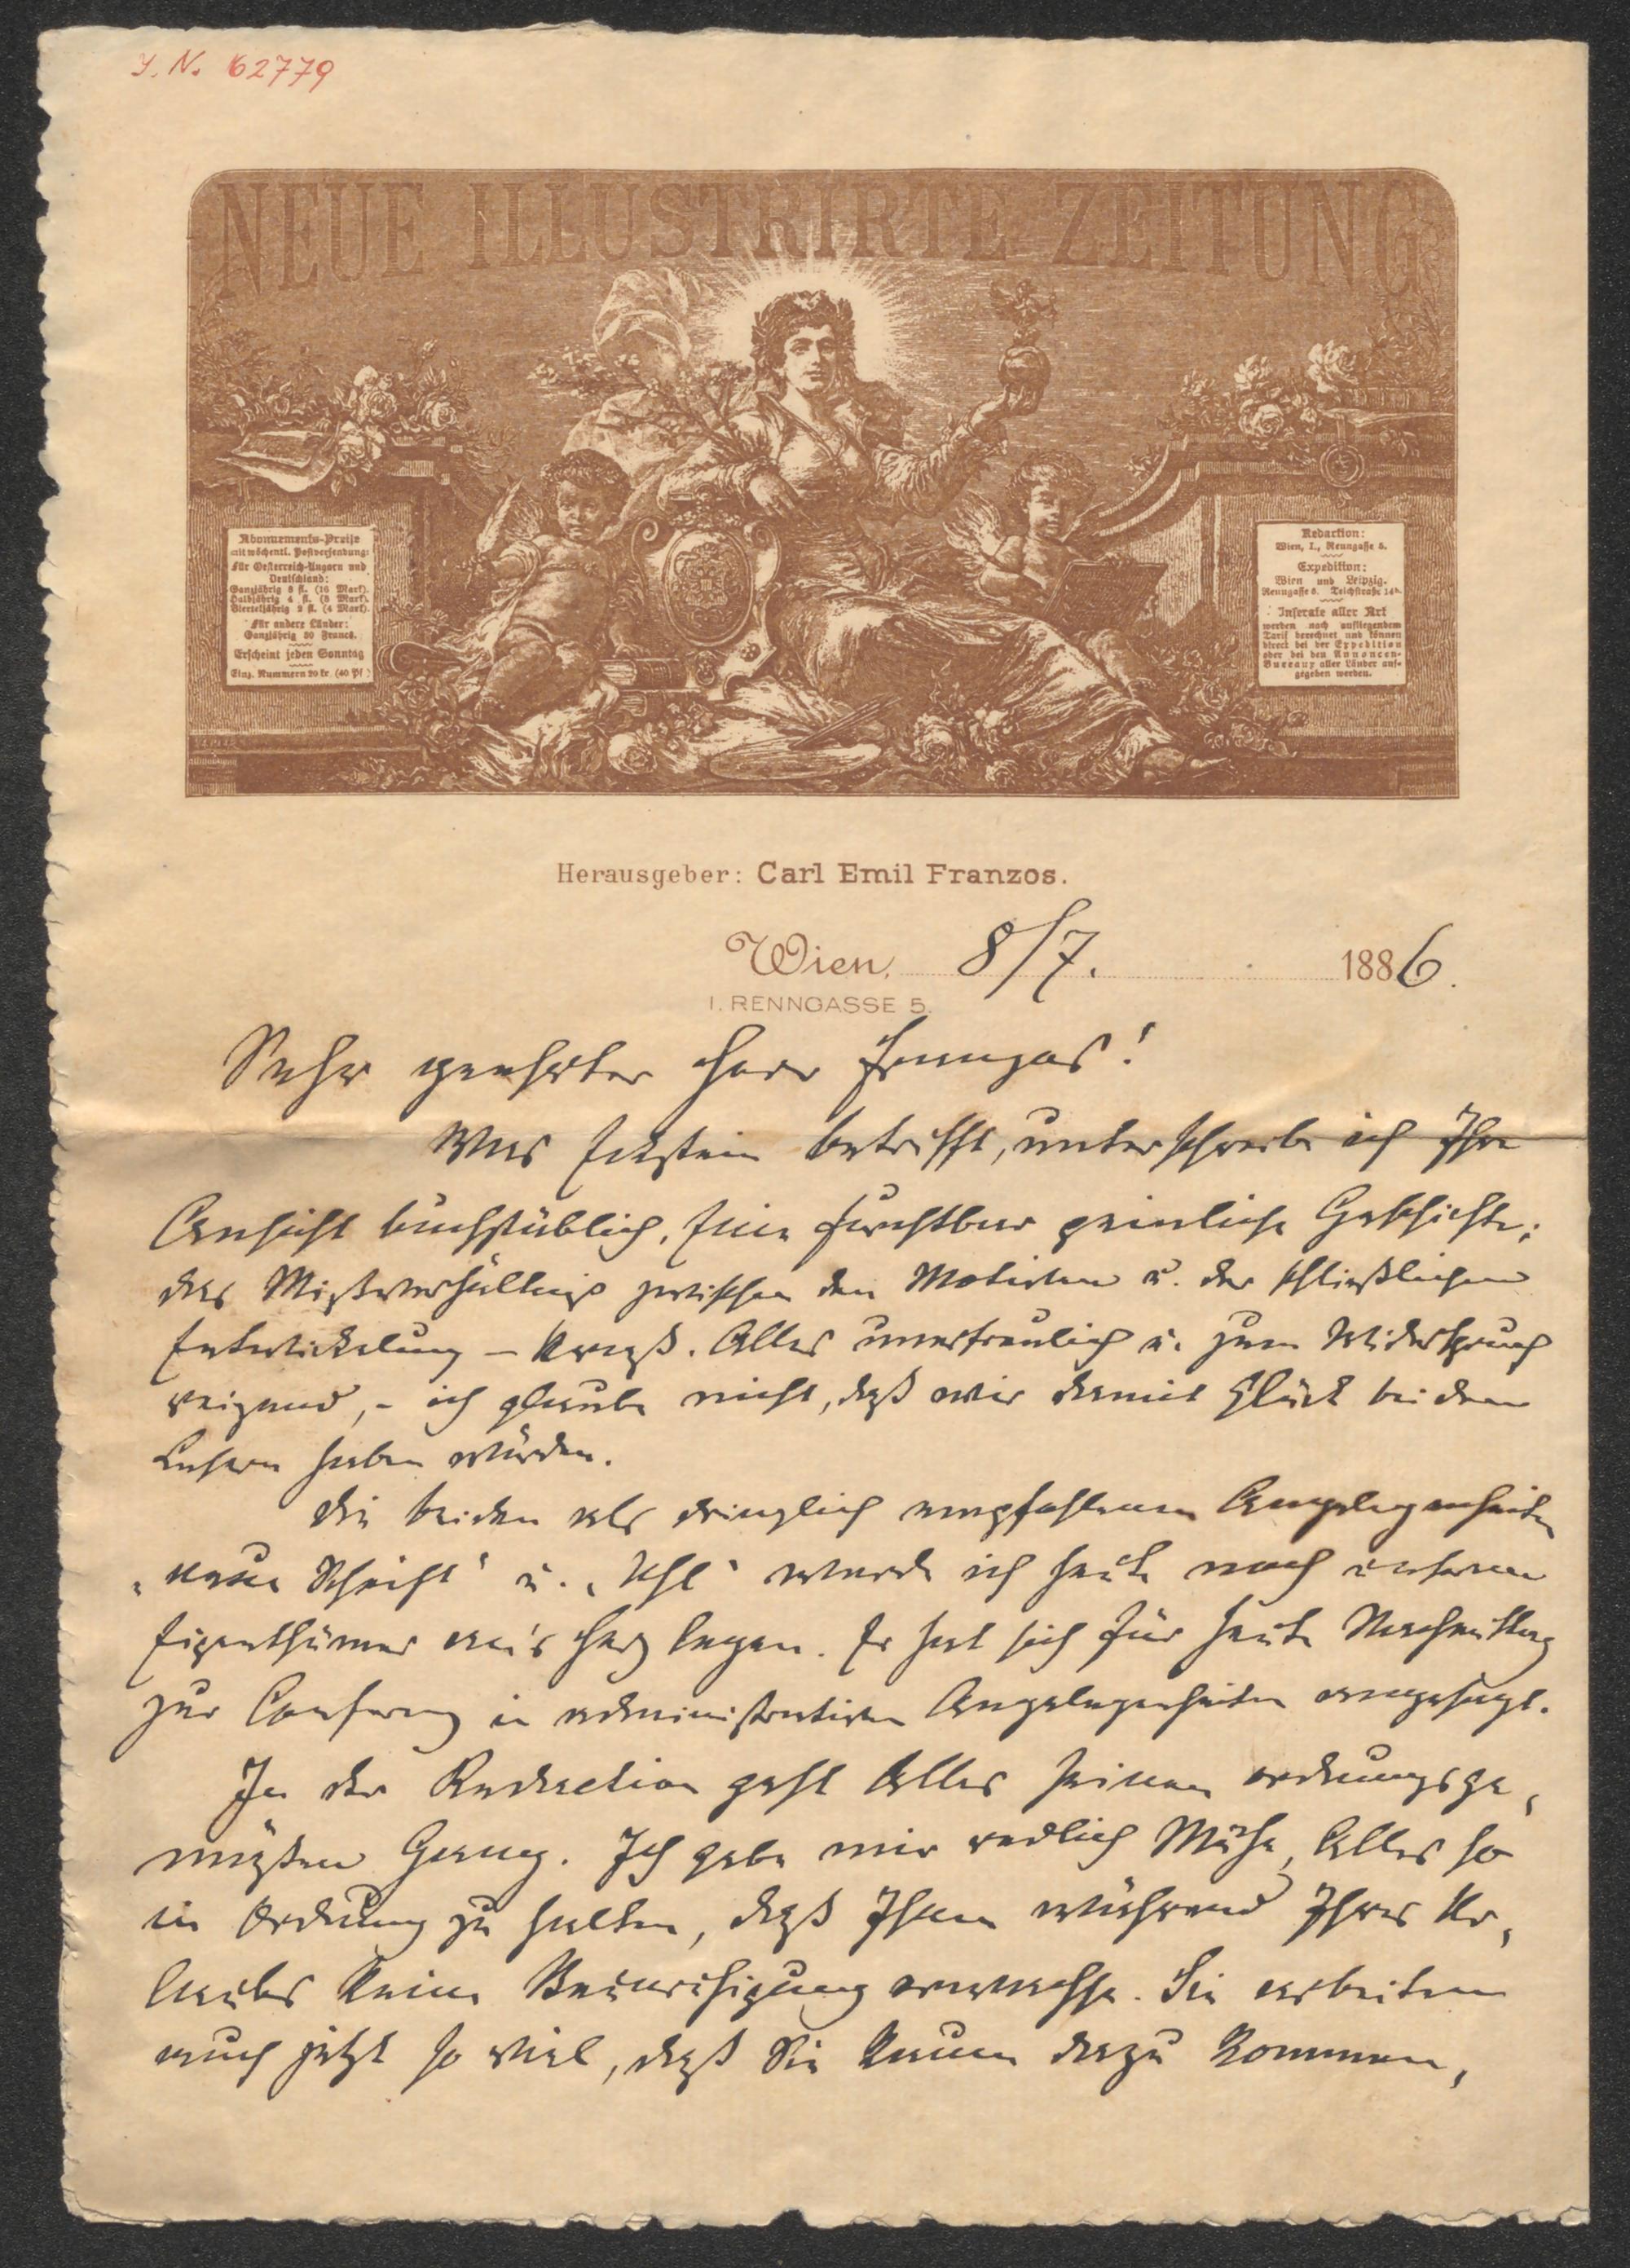 J. N. 62779
NEUE ILLUSTRIRTE ZEITUNG
Abonnements-Preise
mit wöchentl. Postversendung:
Für Oesterreich-Ungarn und
Deutschland:
Ganzjährig 8 fl. (16 Mark).
Halbjährig 4 fl. (8 Mark).
Vierteljährig 2 fl. (4 Mark).
Für andere Länder:
Ganzjährig 20 Francs.
Erscheint jeden Sonntag
Einz. Nummern 20 kr. (40 Pf.)
Redaction:
Wien, I., Renngasse 5.
Expedition:
Wien und Leipzig.
Renngasse 5. Teichstraße
Inserate aller Art
werden nach aufliegendem
Tarif berechnet und können
direct bei der Expedition
oder bei den Annoncen-
Bureaux aller Länder auf-
gegeben werden.
Herausgeber: Carl Emil Franzos.
Wien, 8/7. 1886.
I. RENNGASSE 5.
Sehr geehrter Herr Franzos!
Was Eckstein betrifft, unterschreibe ich Ihre
Ansicht buchstäblich. Eine furchtbar peinliche Geschichte;
das Mißverhältniß zwischen den Motiven u. der schließlichen
Entwickelung – kraß. Alles unerfreulich u. zum Widerspruch
reizend, – ich glaube nicht, daß wir damit Glück bei den
Lesern haben würden.
Die beiden als dringlich empfohlenen Angelegenheiten
„neue Schrift“ u. „Uhl“ werde ich heute noch unserem
Eigenthümer an's Herz legen. Er hat sich für heute Nachmittag
zur Conferenz in administrativen Angelegenheiten angesagt.
In der Redaction geht Alles seinen ordnungsge-
mäßen Gang. Ich gebe mir redlich Mühe, Alles so
in Ordnung zu halten, daß Ihnen während Ihres Ur-
laubes keine Beunruhigung erwachse. Sie arbeiten
auch jetzt so viel, daß Sie kaum dazu kommen,